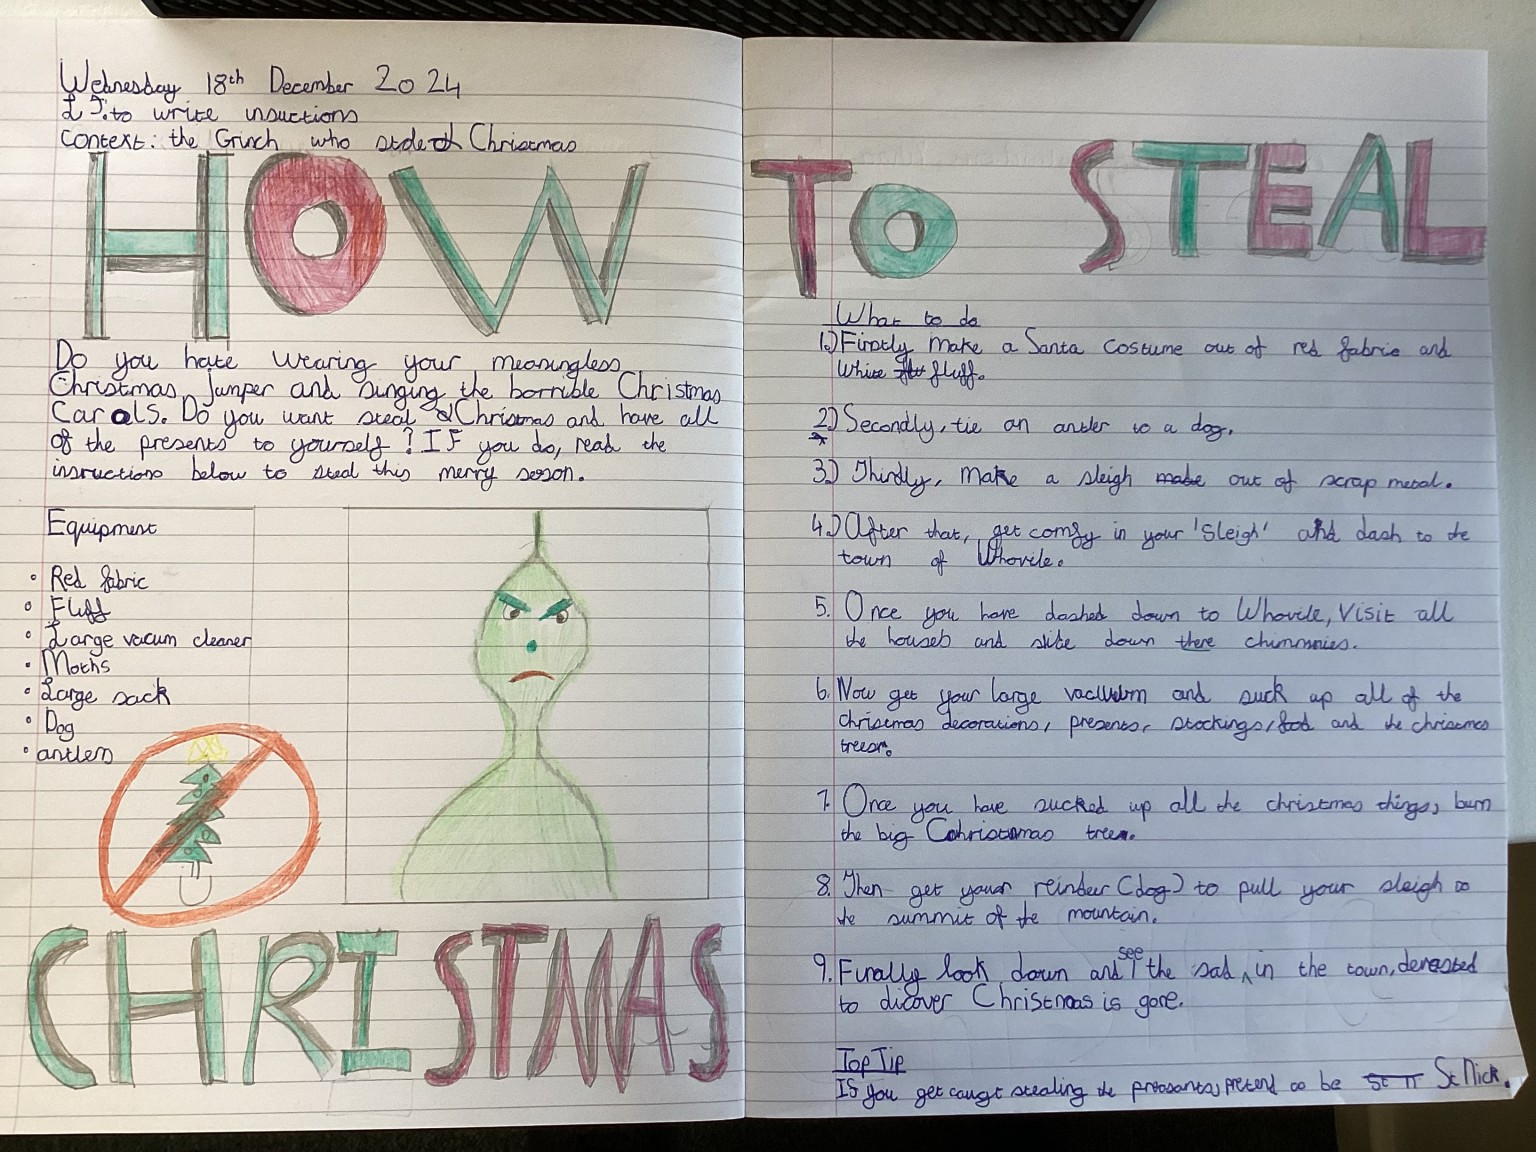 Wednesday 18th December 2024
L.I. to write insuctions
Context: the Grinch who stole Christmas
HOW
Do you hate wearing your meaningless
Christmas jumper and singing the horrible Christmas
Carols. Do you want steal Christmas and have all
of the presents to yourself? IF you do, read the
insructions below to steal this merry seson.
Equipment
• Red fabric
• Fluff
• Large vacum cleaner
• Moths
• Large sack
• Dog
• antlers
CHRISTMAS
TO STEAL
What to do
1.) Firstly make a Santa costume out of red fabric and
white fluff.
2.) Secondly, tie an antler to a dog.
3.) Thirdly, make a sleigh made out of scrap metal.
4.) After that, get comfy in your 'sleigh' and dash to the
town of Whovile.
5. Once you have dashed down to Whovile, visit all
the houses and slide down there chimmnies.
6. Now get your large vacuum and suck up all of the
christmas decorations, presents, stockings, food and the chrismes
trees.
7. Once you have sucked up all the christmas things, burn
the big Christmas tree.
8. Then get your reinder (dog) to pull your sleigh to
the summit of the mountain.
9. Finally look down and see the sad in the town, devasted
to dicover Christmas is gone.
Top Tip
If you get caugt stealing the preasants, pretend to be St n St Nick.